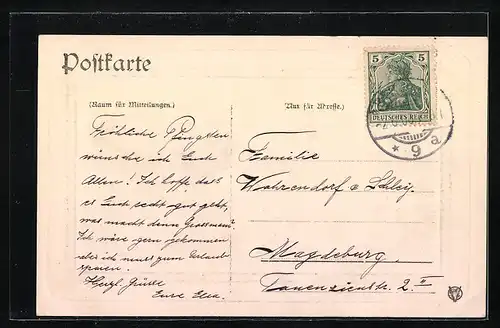 Postkarte
(Raum für Mitteilungen.)
Nur für Adresse.)
5 5
DEUTSCHES REICH
* 9 a
Fröhliche Pfingsten
wünsche ich Euch
Allen! Ich hoffe dass
es Euch recht gut geht,
was macht denn Grossmama?
Ich wäre gern gekommen
aber ich muss zum
sparen.
Herzl. Grüsse
Eure Elsa.
Familie
Wohrendorf
Magdeburg.
Tauenzienstr. 2 II